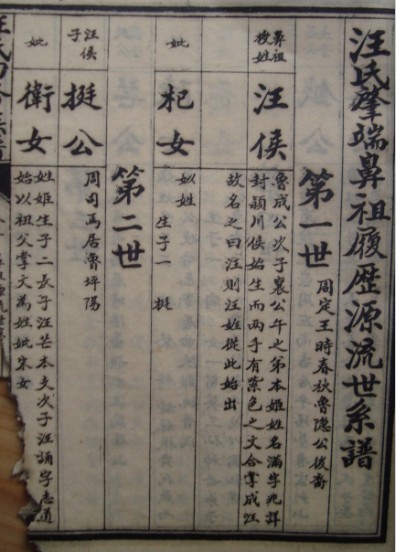 汪氏肇端鼻祖履歷源流世系譜
第一世
周定王時春秋魯隱公後裔
鼻祖
授姓
汪侯
魯成公次子襄公午之弟本姬姓名滿字
封潁川侯始生而两手有紫色之文合掌成汪
故名之曰汪則汪姓從此始出
妣
杞女
姒姓
生子一 挺
第二世
汪侯
子
挺公
周司馬居魯坪陽
妣
衛女
姓姬生子二長子汪芒本支次子汪誦字志道
始以祖父掌文為姓妣宋女